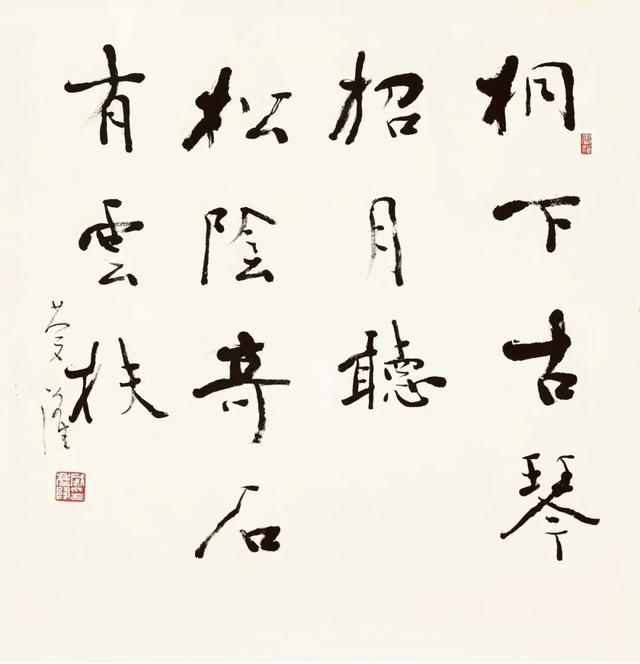 桐下古琴
招月聽
松陰奇石
有雲扶